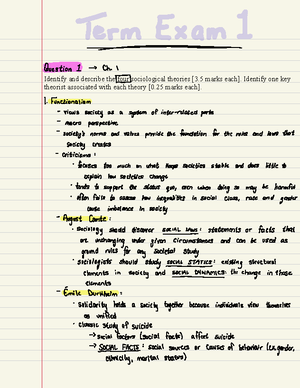 Term Exam 1
Question 1 → Ch. 1
Identify and describe the four sociological theories [3.5 marks each]. Identify one key
theorist associated with each theory [0.25 marks each].
1. Functionalism
- views society as a system of inter-related parts
- macro perspective
- society's norms and values provide the foundation for the rules and laws that
society creates
- criticisms:
• focuses too much on what keeps societies stable and does little to
explain how societies change
• tends to support the status quo, even when doing so may be harmful
• often fails to assess how inequalities in social class, race and gender
cause imbalance in society
- August Comte:
• Sociology would discover SOCIAL LAWS: statements or facts that
are unchanging under given circumstances and can be used as
ground rules for any societal study
• Sociologists should study SOCIAL STATICS: existing structural
elements in society and SOCIAL DYNAMICS: the change in those
elements
- Émile Durkheim:
• Solidarity holds a society together because individuals view themselves
as unified
• classic study of suicide
→ social factors (social facts) affect suicide
→ SOCIAL FACTS: social sources or causes of behaviour (ex. gender,
ethnicity, marital status)